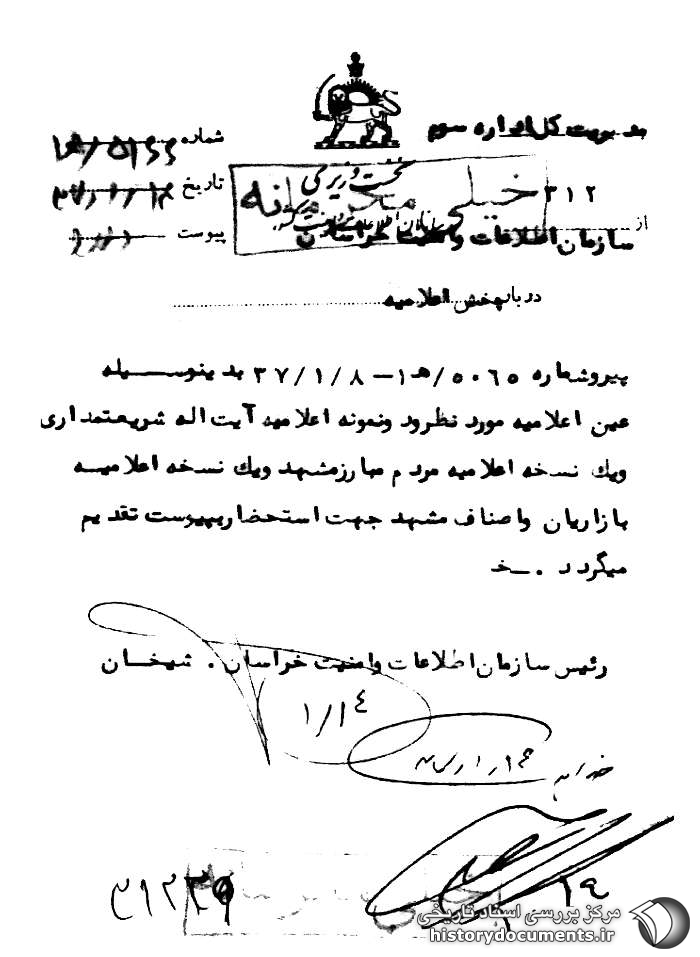 مدیریت کل اداره سوم
شماره
نخست وزیری
تاریخ
خیلی محرمانه
۳۱۲
از
سازمان اطلاعات و امنیت خراسان
پیوست
درباره پخش اعلامیه
پیروشماره ۵۰۶۵/ه‍۱ـ ۳۷/۱/۸ بدینوسیله
عین اعلامیه مورد نظرو دونمونه اعلامیه آیت اله شریعتمداری
ویك نسخه اعلامیه مردم مبارزمشهد ویك نسخه اعلامیه
بازاریان واصناف مشهد جهت استحضاربپیوست تقدیم
میگردد . ـخ
رئیس سازمان اطلاعات وامنیت خراسان . شیخان
۱/۱۴
۳۱۲۳۹
۱۹
مرکز بررسی اسناد تاریخی
historydocuments.ir